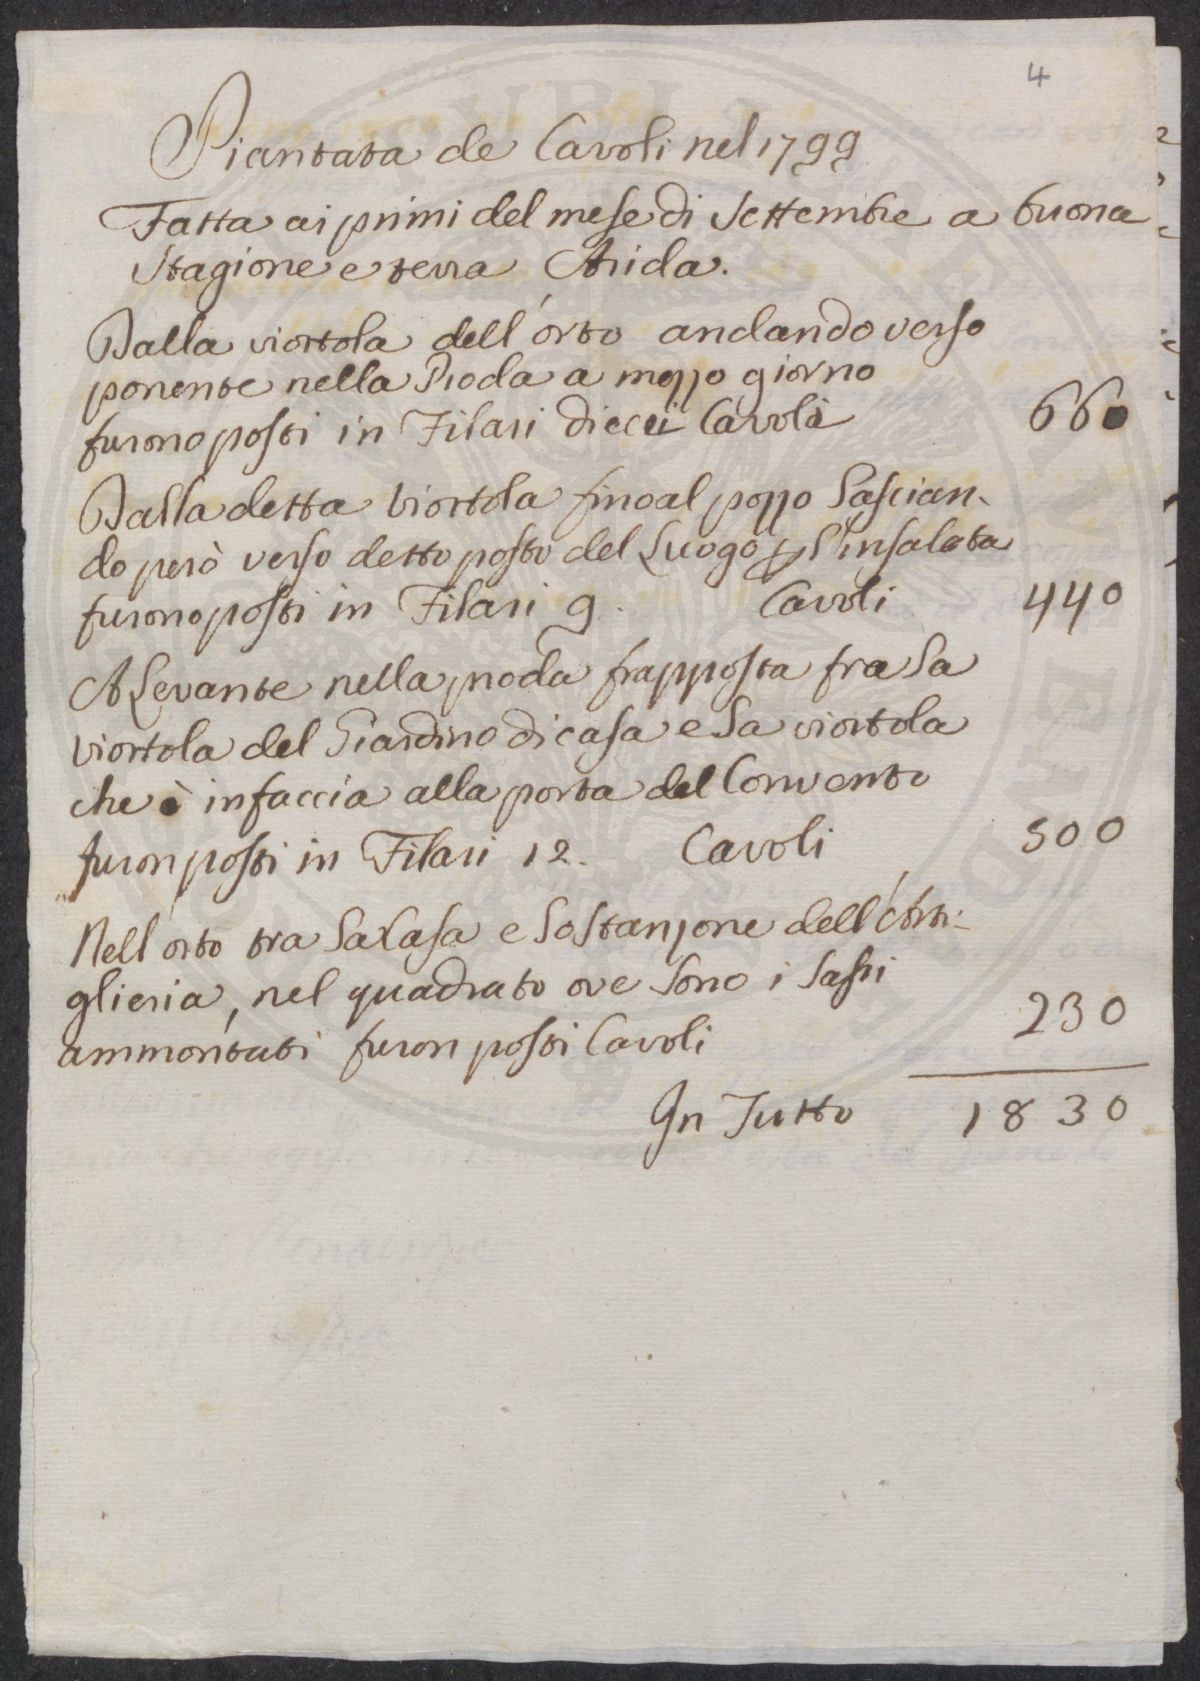 4
Piantata de Cavoli nel 1799
Fatta ai primi del mese di Settembre a buona
Stagione e terra Arida.
Dalla viottola dell'orto andando verso
ponente nella Proda a mezzo giorno
furono posti in Filari dieci Cavoli 660
Dalla detta Viottola fino al pozzo Lascian-
do però verso detto posto del Luogo p l'insalata
furono posti in Filari 9. Cavoli 440
A Levante nella proda frapposta fra la
viottola del Giardino di casa e la viottola
che è in faccia alla porta del Convento
furon posti in Filari 12. Cavoli 500
Nell'orto tra la Casa e lo Stanzone dell'Arti-
glieria, nel quadrato ove sono i Sassi
ammontati furon posti Cavoli 230
In Tutto 1830